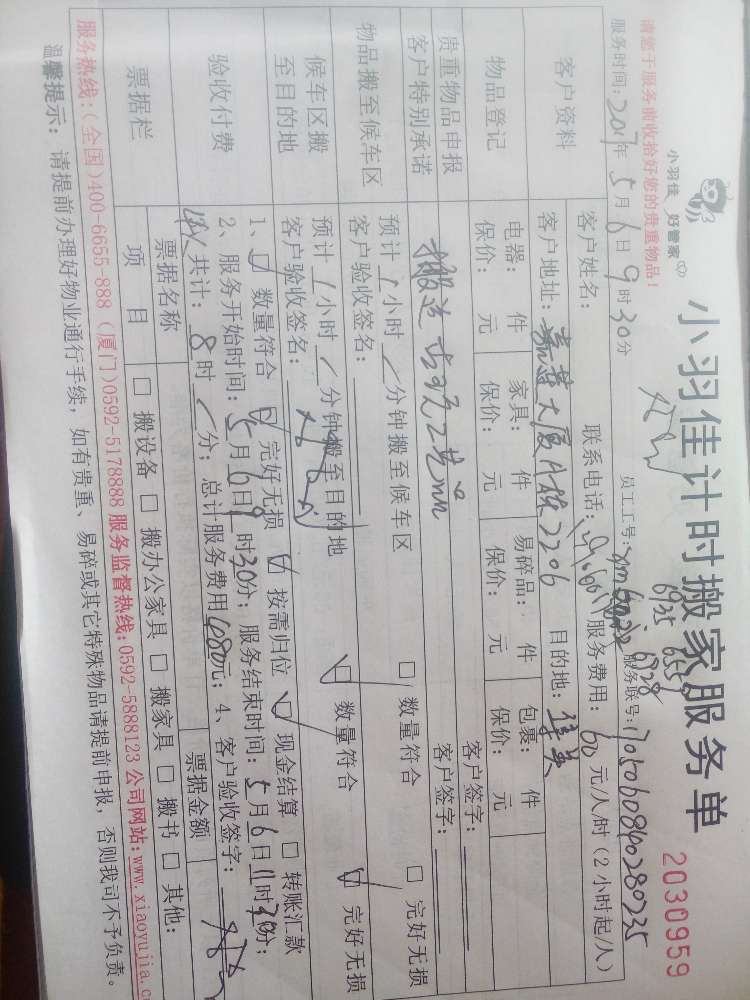 小羽佳 好管家
小羽佳计时搬家服务单
2030959
请您于服务前收拾好您的贵重物品!
服务时间: 2017年5月6日9时30分
员工工号:
服务联号:
客户资料
客户姓名:
联系电话:
服务费用: 60元/人/时(2小时起/人)
客户地址:
目的地:
物品登记
电器: 件
家具: 件
易碎品: 件
包裹: 件
保价: 元
保价: 元
保价: 元
保价: 元
贵重物品申报
客户签字:
客户特别承诺
客户签字:
物品搬至候车区
预计 1小时 / 分钟搬至候车区
□ 数量符合
□ 完好无损
客户验收签名:
候车区搬至目的地
预计 1小时 / 分钟搬至目的地
☑ 数量符合
☑ 完好无损
客户验收签名:
验收付费
1、☑ 数量符合 ☑ 完好无损 ☑ 按需归位 ☑ 现金结算 □ 转账汇款
2、服务开始时间: 5月6日9时30分; 服务结束时间: 5月6日11时30分;
共计: 8时 / 分; 总计服务费用480元; 4、客户验收签字:
票据栏
票据名称
票据金额
项目
□ 搬设备 □ 搬办公家具 □ 搬家具 □ 搬书 □ 其他:
服务热线:(全国)400-6655-888 (厦门)0592-5178888 服务监督热线:0592-5888123 公司网站:www.xiaoyujia.c
温馨提示: 请提前办理好物业通行手续, 如有贵重、易碎或其它特殊物品请提前申报, 否则我司不予负责。